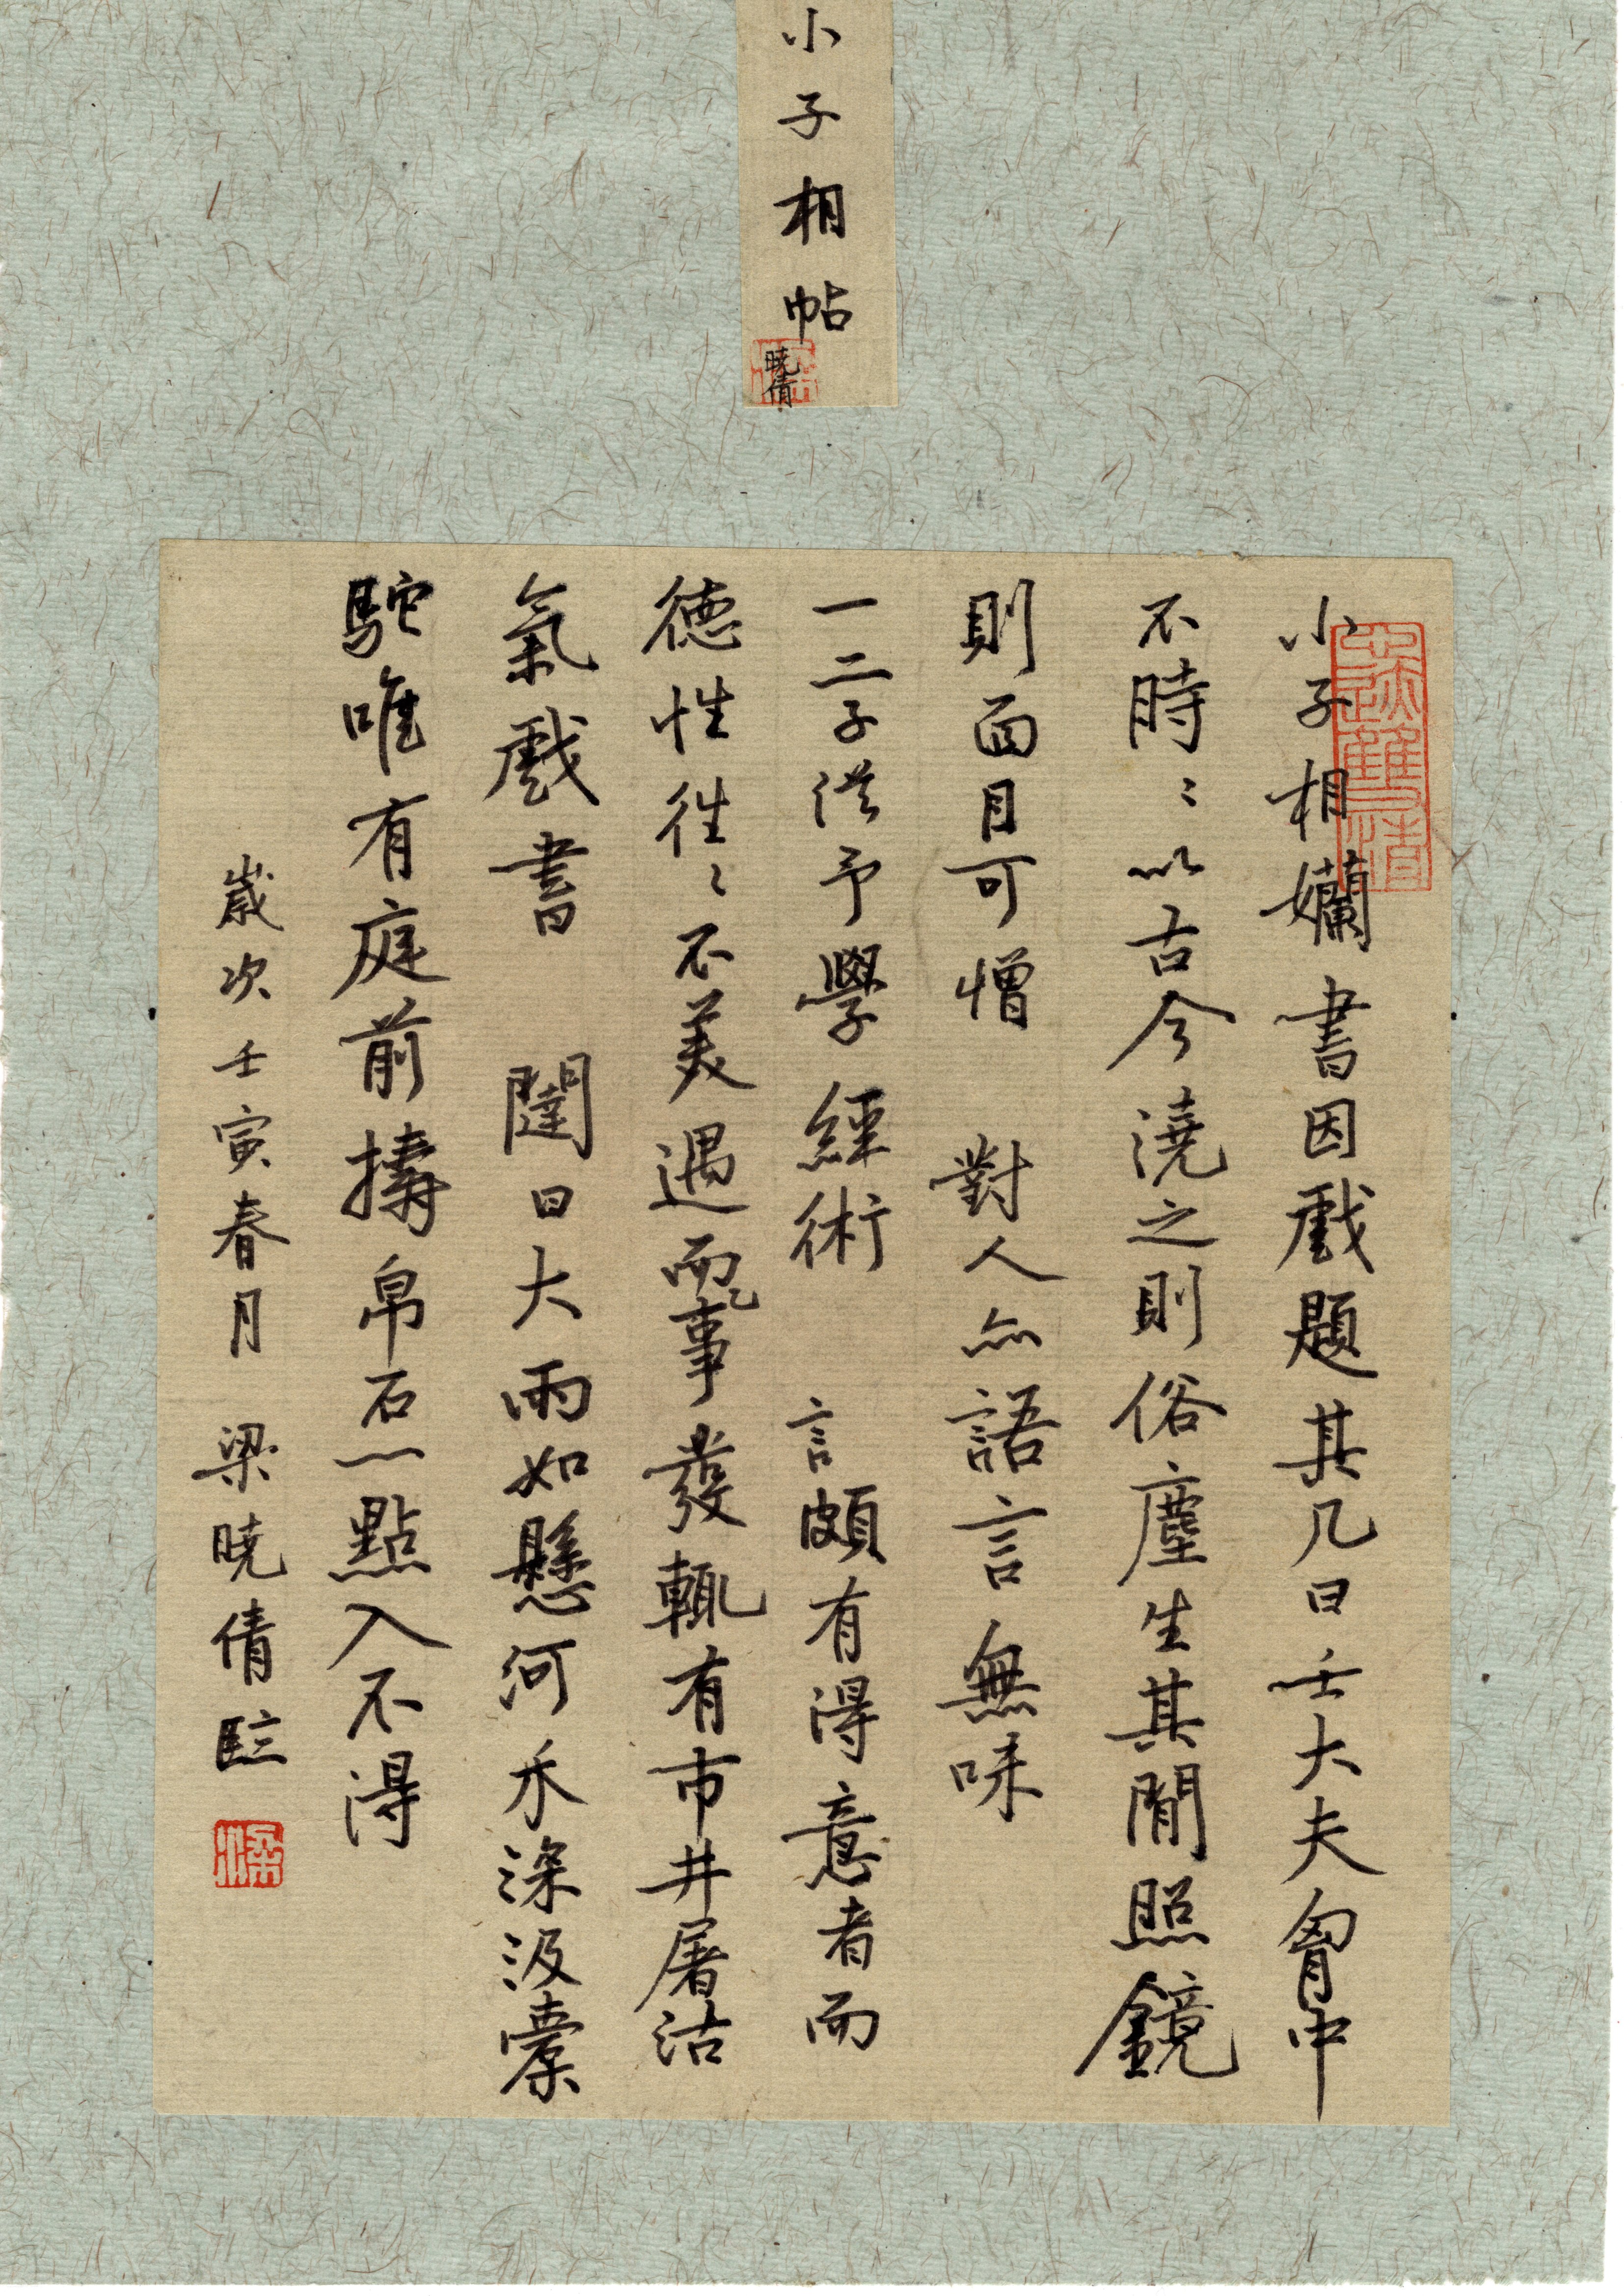 小子相帖
曉倩
小子相嬾書因戲題其几曰士大夫胷中
不時〻以古今澆之則俗塵生其間照鏡
則面目可憎 對人亦語言無味
一二子從予學經術 言頗有得意者而
德性往〻不美遇而事發輒有市井屠沽
氣戲書 闥曰大雨如懸河禾深汲橐
駝唯有庭前擣帛石一點入不得
歲次壬寅春月 梁曉倩臨